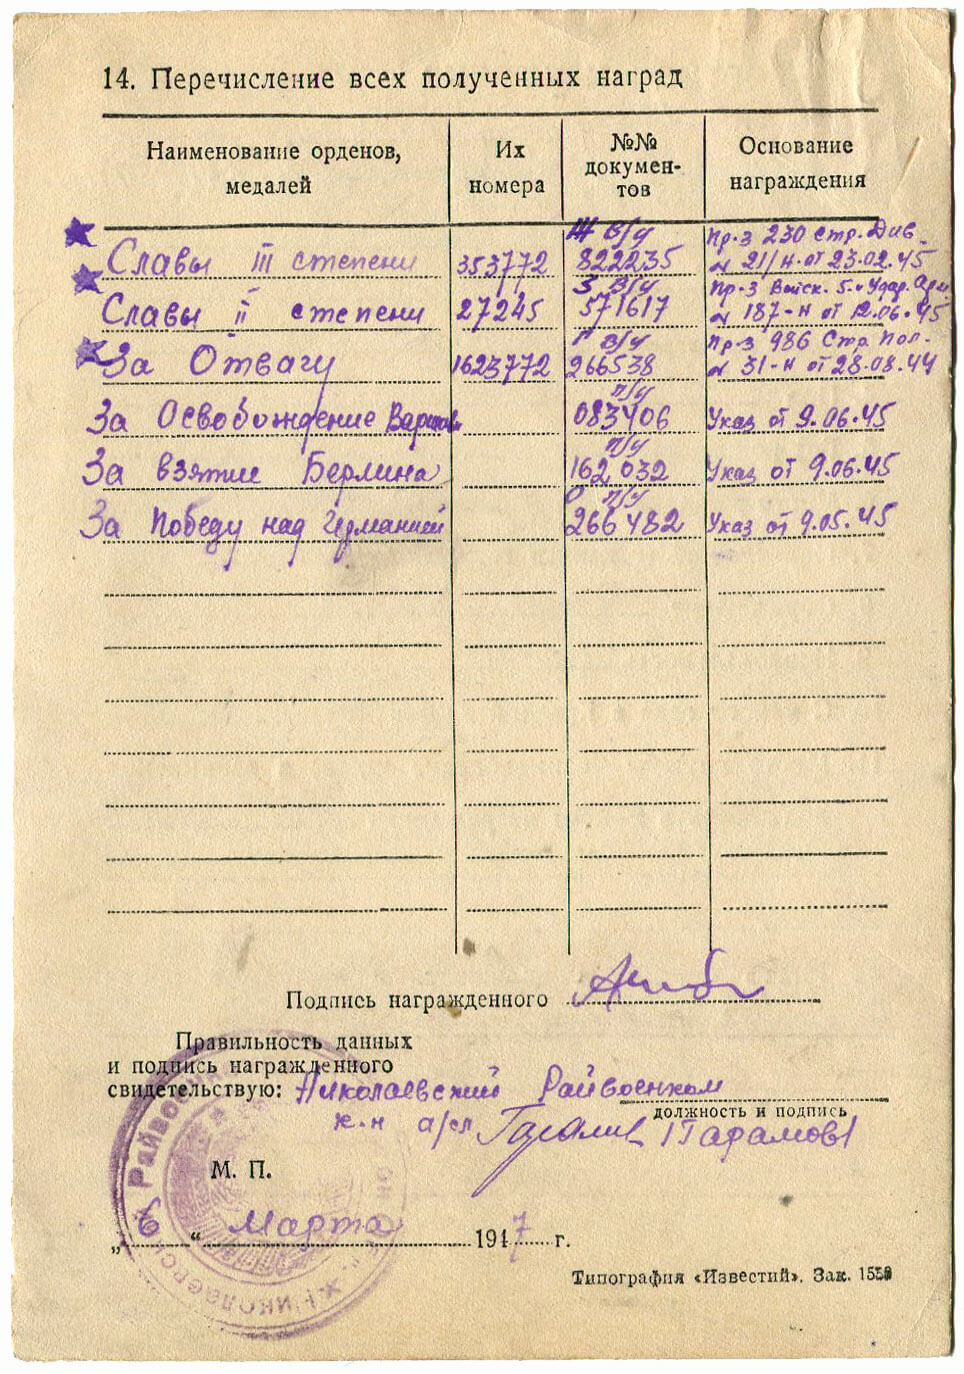 14. Перечисление всех полученных наград
Наименование орденов, медалей
Их номера
№№ документов
Основание награждения
Славы III степени 353772 Ж в/у 822235 Пр-з 230 стр. Див. н 21/н. от 23.02.45
Славы II степени 27245 З в/у 571617 Пр-з Войск. 5. Удар. Арм н 187-н от 12.06.45
За Отвагу 1623772 Г в/у 266538 Пр-з 986 Стр. Пол. н 31-н от 28.08.44
За Освобождение Варшавы п/у 083406 Указ от 9.06.45
За взятие Берлина п/у 162032 Указ от 9.06.45
За Победу над Германией О п/у 266482 Указ от 9.05.45
Подпись награжденного
Правильность данных
и подпись награжденного
свидетельствую: Николаевский Райвоенком
должность и подпись
к-н а/сл /Гарамов/
М. П.
„6“ Марта 1947 г.
Типография «Известий». Зак. 1550